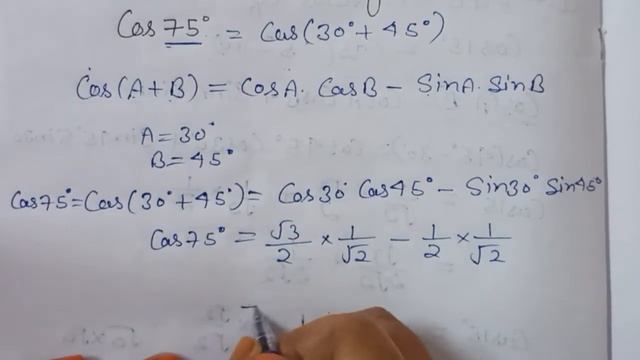 Cos 75° = Cos(30° + 45°)
Cos(A+B) = CosA. CosB − SinA. SinB
A = 30°
B = 45°
Cos75° = Cos(30° + 45°) = Cos30° Cos45° − Sin30° Sin45°
Cos75° = √3/2 × 1/√2 − 1/2 × 1/√2